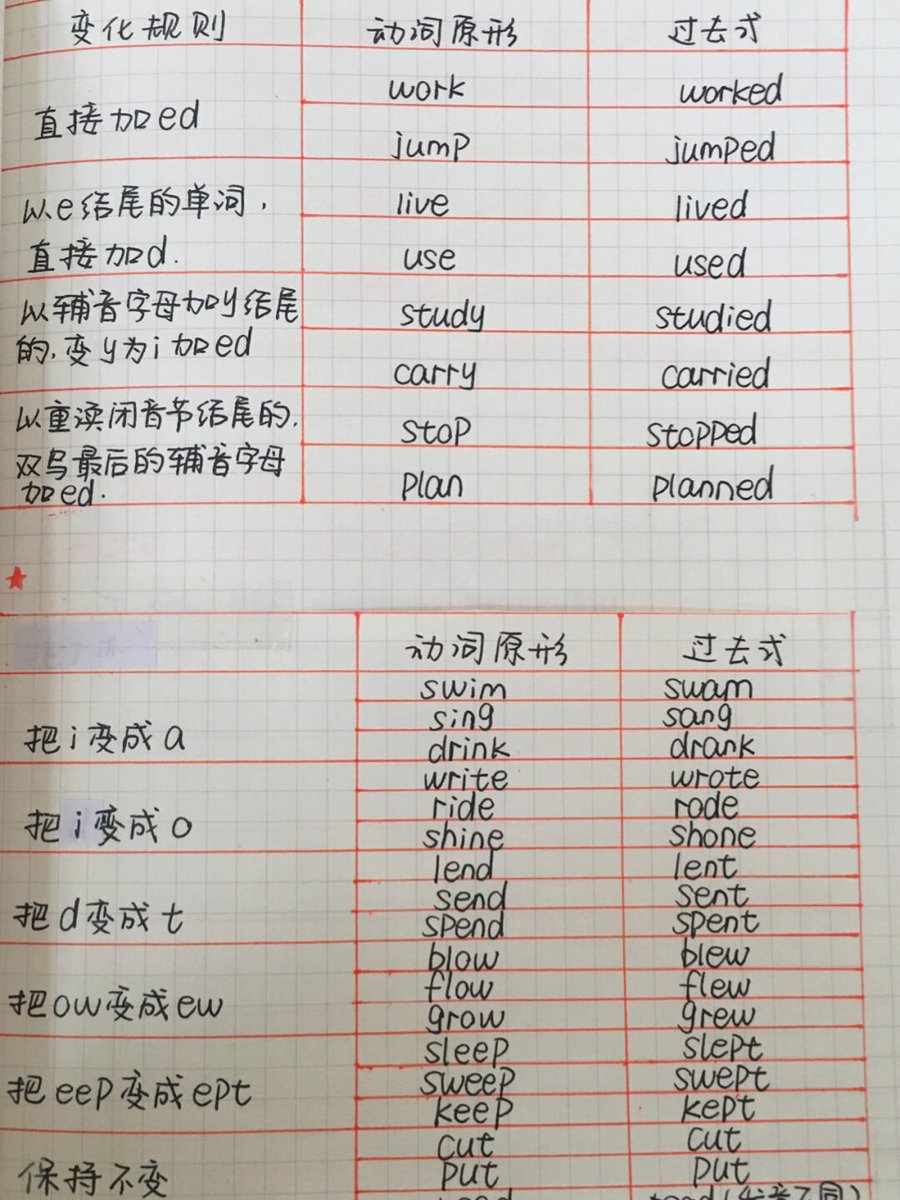 变化规则 动词原形 过去式
直接加ed
work worked
jump jumped
以e结尾的单词，
直接加d.
live lived
use used
以辅音字母加y结尾
的，变y为i加ed
study studied
carry carried
以重读闭音节结尾的，
双写最后的辅音字母
加ed.
stop stopped
plan planned
动词原形 过去式
把i变成a
swim swam
sing sang
drink drank
把i变成o
write wrote
ride rode
shine shone
把d变成t
lend lent
send sent
spend spent
把ow变成ew
blow blew
flow flew
grow grew
把eep变成ept
sleep slept
sweep swept
keep kept
保持不变
cut cut
put put